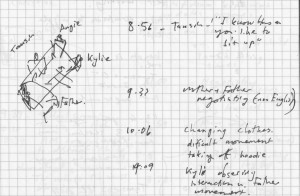 Angie
Kylie
Father
8:56 - "I know
you like to
sit up"
9.
Mother & Father
negotiating (non English)
10:06 Changing clothes.
dificult movement
taking of hoodie
Kylie observing
interaction Father
movement